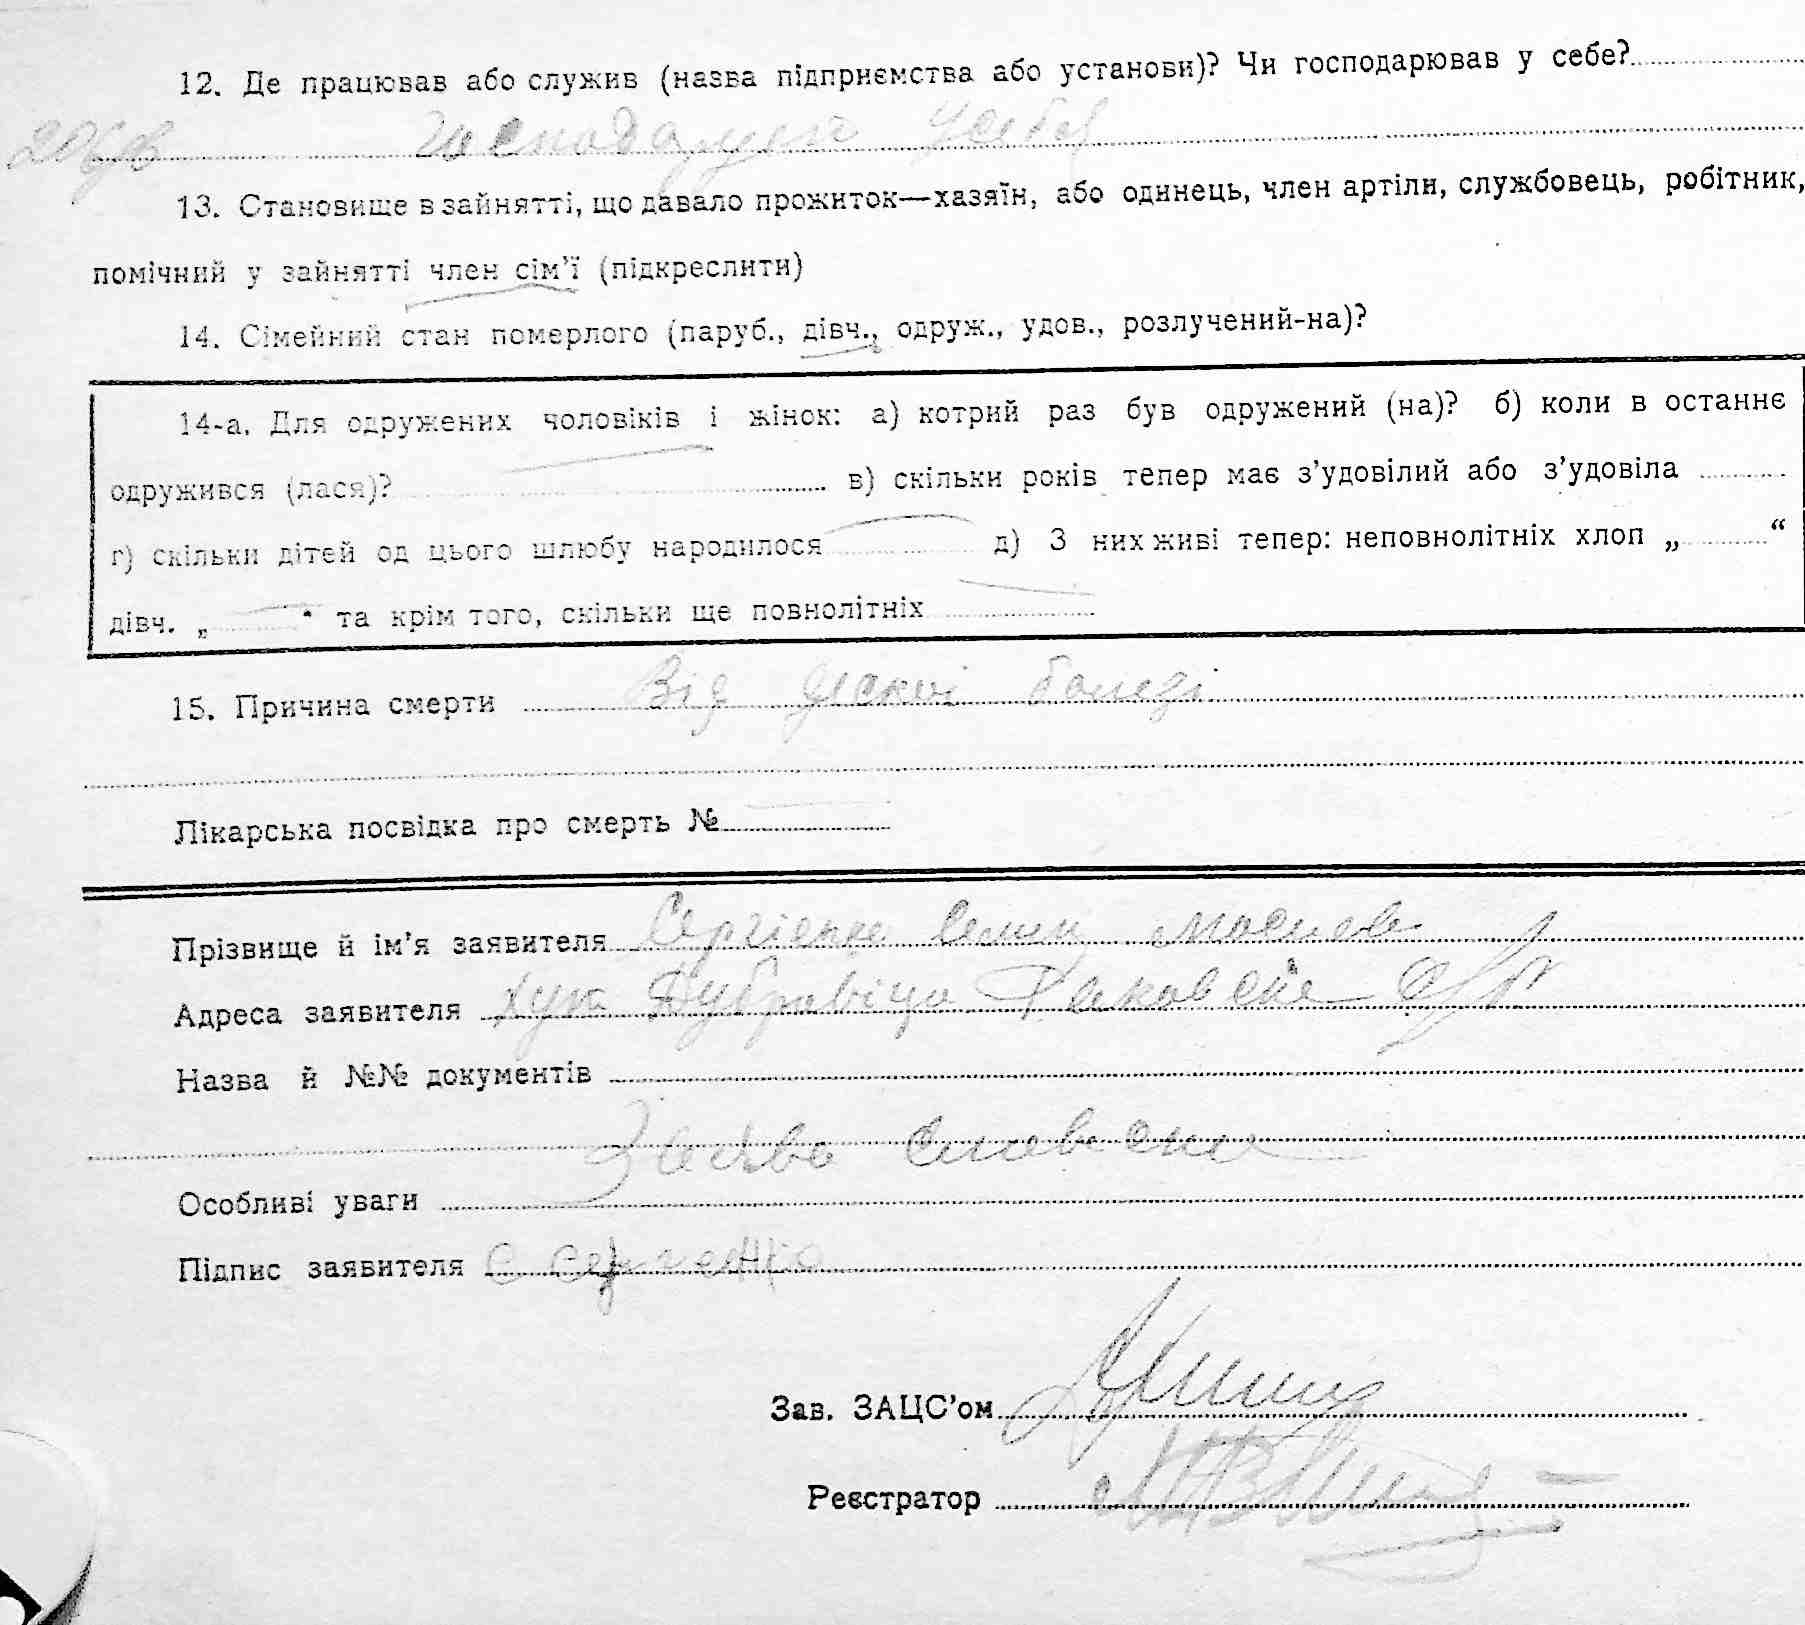 12. Де працював або служив (назва підприємства або установи)? Чи господарював у себе?
У себе
13. Становище в зайнятті, що давало прожиток—хазяїн, або одинець, член артіли, службовець, робітник,
помічний у зайнятті член сім'ї (підкреслити)
14. Сімейний стан померлого (паруб., дівч., одруж., удов., розлучений-на)?
14-а. Для одружених чоловіків і жінок: а) котрий раз був одружений (на)? б) коли в останнє
одружився (лася)? в) скільки років тепер має з'удовілий або з'удовіла
г) скільки дітей од цього шлюбу народилося д) З них живі тепер: неповнолітніх хлоп „ “
дівч. „ “ та крім того, скільки ще повнолітніх
15. Причина смерти Від
Лікарська посвідка про смерть №
Прізвище й ім'я заявителя Сергієнко
Адреса заявителя хут Дубравіца
Назва й №№ документів
Заява словесна
Особливі уваги
Підпис заявителя С Сергієнко
Зав. ЗАЦС'ом
Реєстратор